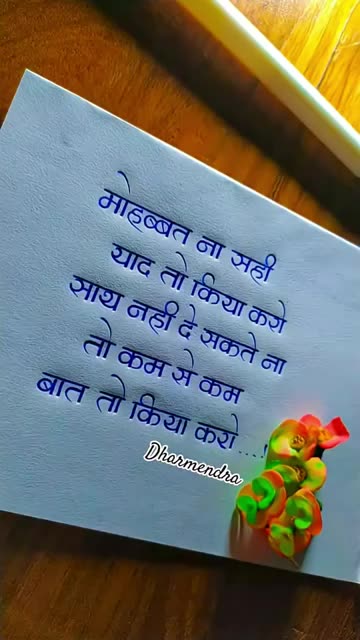 मोहब्बत ना सही
याद तो किया करो
साथ नही दे सकते ना
तो कम से कम
बात तो किया करो....!
Dharmendra